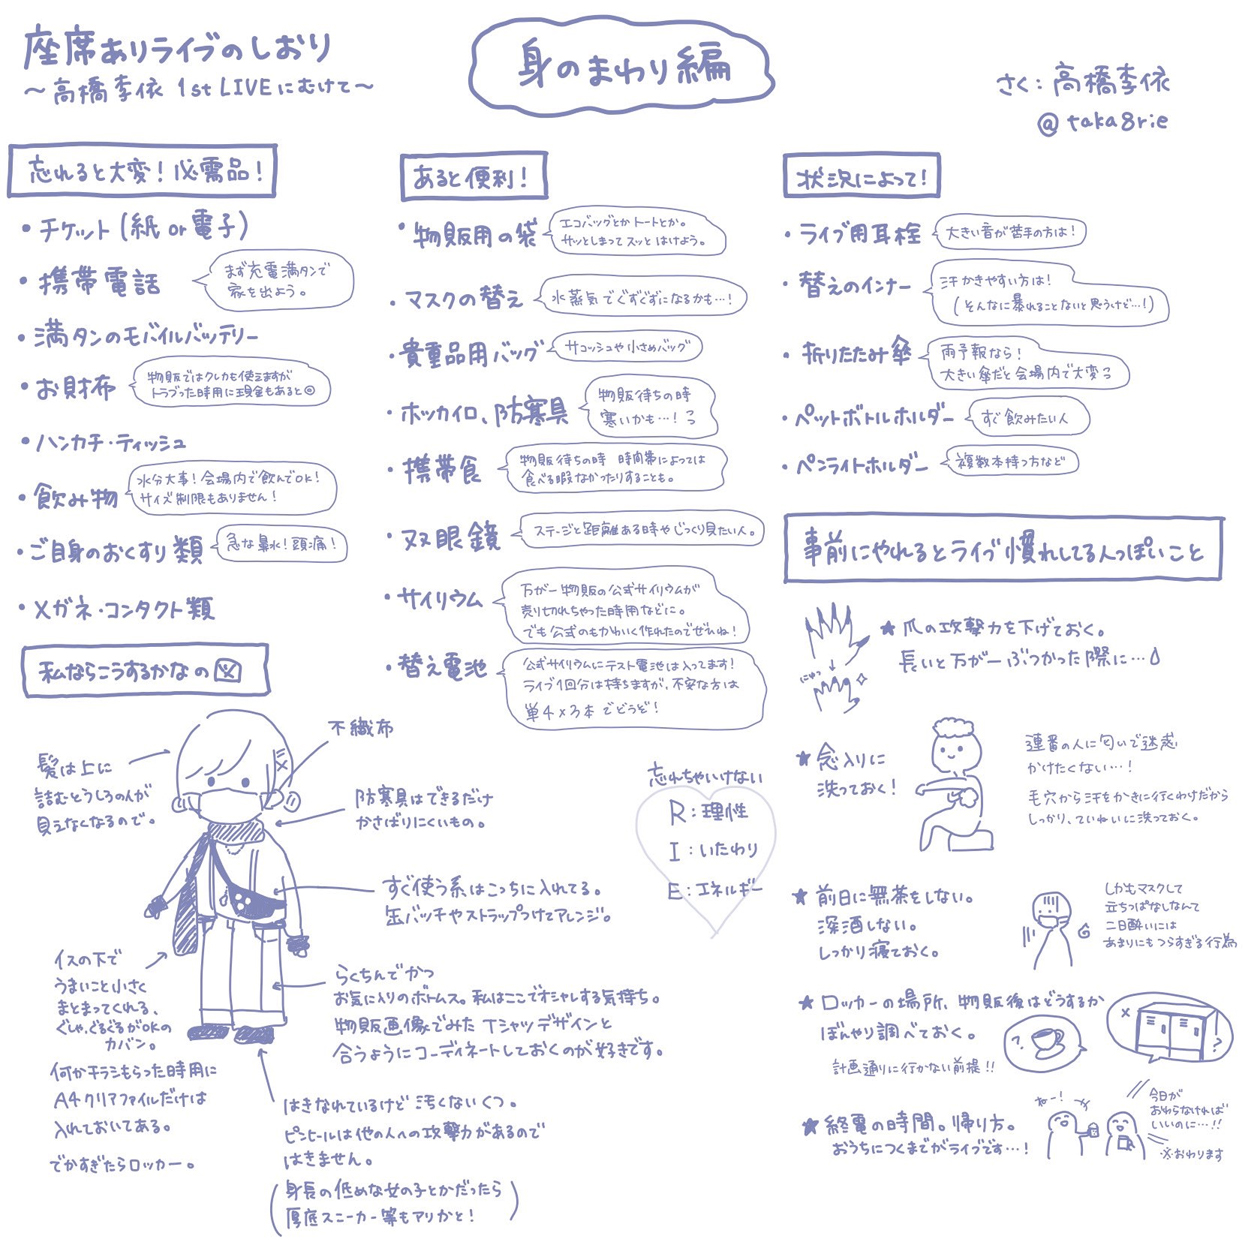 座席ありライブのしおり
～高橋李依 1st LIVEにむけて～
身のまわり編
さく：高橋李依
@taka8rie
忘れると大変！必需品！
・チケット（紙or電子）
・携帯電話
まず充電満タンで
家を出よう。
・満タンのモバイルバッテリー
・お財布
物販ではクレカも使えますが
トラブった時用に現金もあると◎
・ハンカチ・ティッシュ
・飲み物
水分大事！会場内で飲んでOK！
サイズ制限もありません！
・ご自身のおくすり類
急な鼻水！頭痛！
・メガネ・コンタクト類
あると便利！
・物販用の袋
エコバッグとかトートとか。
サッとしまってスッとはけよう。
・マスクの替え
水蒸気でぐずぐずになるかも…！
・貴重品用バッグ
サコッシュや小さめバッグ
・ホッカイロ、防寒具
物販待ちの時
寒いかも…！っ
・携帯食
物販待ちの時 時間帯によっては
食べる暇なかったりすることも。
・双眼鏡
ステージと距離ある時やじっくり見たい人。
・サイリウム
万が一物販の公式サイリウムが
売り切れちゃった時用などに。
でも公式のもかわいく作れたのでぜひね！
・替え電池
公式サイリウムにテスト電池は入ってます！
ライブ1回分は持ちますが、不安な方は
単4×3本でどうぞ！
状況によって！
・ライブ用耳栓
大きい音が苦手の方は！
・替えのインナー
汗かきやすい方は！
（そんなに暴れることないと思うけど…！）
・折りたたみ傘
雨予報なら！
大きい傘だと会場内で大変っ
・ペットボトルホルダー
すぐ飲みたい人
・ペンライトホルダー
複数本持つ方など
事前にやれるとライブ慣れしてる人っぽいこと
★爪の攻撃力を下げておく。
長いと万が一ぶつかった際に…
にゅっ
★念入りに
洗っておく！
連番の人に匂いで迷惑
かけたくない…！
毛穴から汗をかきに行くわけだから
しっかり、ていねいに洗っておく。
★前日に無茶をしない。
深酒しない。
しっかり寝ておく。
しかもマスクして
立ちっぱなしなんて
二日酔いには
あまりにもつらすぎる行為
★ロッカーの場所、物販後はどうするか
ぼんやり調べておく。
計画通りに行かない前提！！
?
×
?
★終電の時間。帰り方。
おうちにつくまでがライブです…！
ねー！
今日が
おわらなければ
いいのに…！！
※おわります
私ならこうするかなの図
髪は上に
詰むとうしろの人が
見えなくなるので。
不織布
防寒具はできるだけ
かさばりにくいもの。
すぐ使う系はこっちに入れてる。
缶バッチやストラップつけてアレンジ。
イスの下で
うまいこと小さく
まとまってくれる、
ぐしゃ、ぐるぐるがOKの
カバン。
何かチラシもらった時用に
A4クリアファイルだけは
入れておいてある。
でかすぎたらロッカー。
らくちんでかつ
お気に入りのボトムス。私はここでオシャレする気持ち。
物販画像でみたTシャツデザインと
合うようにコーディネートしておくのが好きです。
はきなれているけど汚くないくつ。
ピンヒールは他の人への攻撃力があるので
はきません。
（身長の低めな女の子とかだったら
厚底スニーカー等もアリかと！）
忘れちゃいけない
R：理性
I：いたわり
E：エネルギー